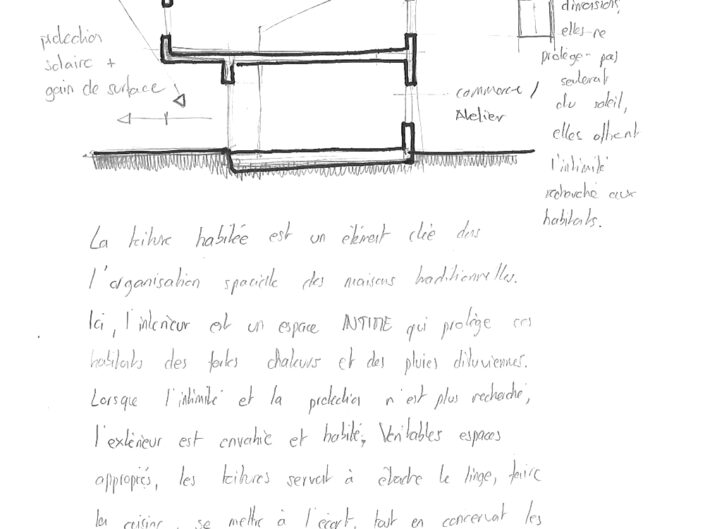 protection
solaire +
gain de surface
commerce /
Atelier
dimension,
elles ne
protège pas
seulement
du soleil,
elles offrent
l'intimité
recherché aux
habitats.
La toiture habitée est un élément clée dans
l'organisation spacielle des maisons traditionnelles.
Ici, l'intérieur est un espace INTIME qui protège ces
habitants des fortes chaleurs et des pluies diluviennes.
Lorsque l'intimité et la protection n'est plus recherché,
l'extérieur est envahie et habité, Veritables espaces
appropriés, les toitures servent à étendre le linge, faire
la cuisine, se mettre à l'écart, tout en conservant les